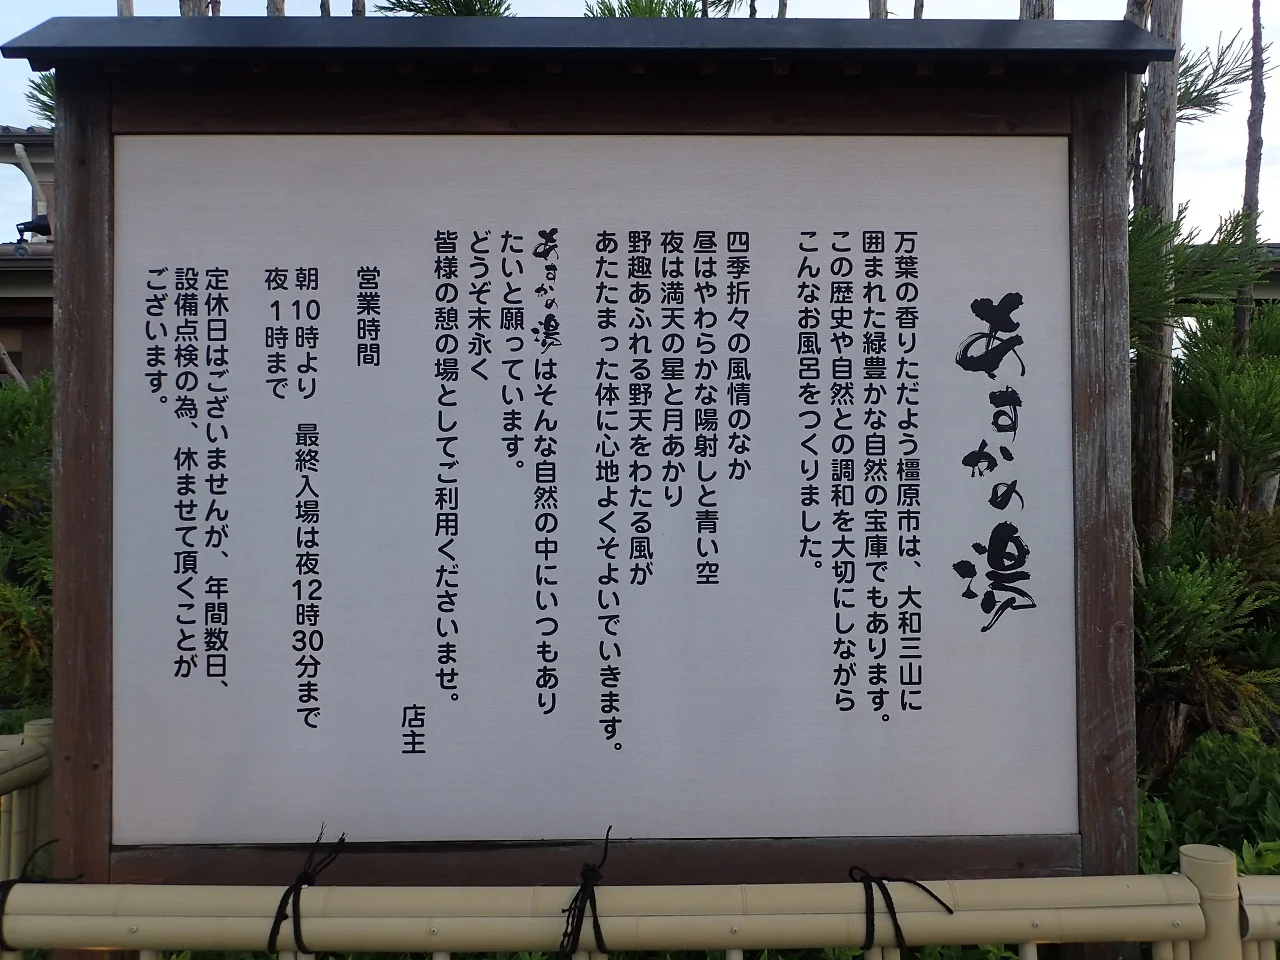 あすかの湯
万葉の香りただよう橿原市は、大和三山に
囲まれた緑豊かな自然の宝庫でもあります。
この歴史や自然との調和を大切にしながら
こんなお風呂をつくりました。
四季折々の風情のなか
昼はやわらかな陽射しと青い空
夜は満天の星と月あかり
野趣あふれる野天をわたる風が
あたたまった体に心地よくそよいでいきます。
あすかの湯はそんな自然の中にいつもあり
たいと願っています。
どうぞ末永く
皆様の憩の場としてご利用くださいませ。
店主
営業時間
朝10時より 最終入場は夜12時30分まで
夜1時まで
定休日はございませんが、年間数日、
設備点検の為、休ませて頂くことが
ございます。